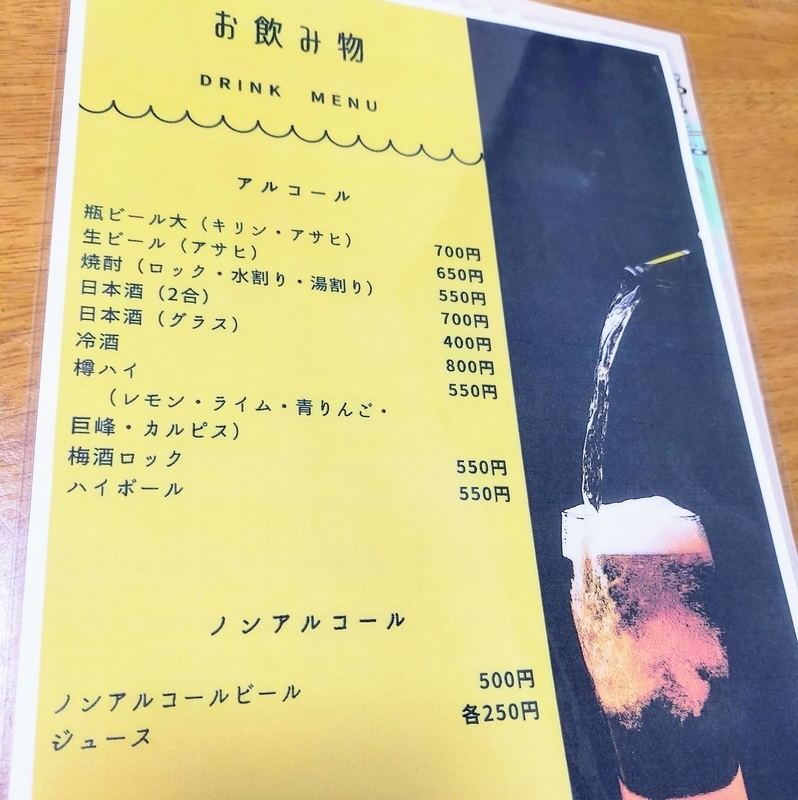 お飲み物
DRINK MENU
アルコール
瓶ビール大（キリン・アサヒ） 700円
生ビール（アサヒ） 650円
焼酎（ロック・水割り・湯割り） 550円
日本酒（2合） 700円
日本酒（グラス） 400円
冷酒 800円
樽ハイ 550円
（レモン・ライム・青りんご・
巨峰・カルピス）
梅酒ロック 550円
ハイボール 550円
ノンアルコール
ノンアルコールビール 500円
ジュース 各250円